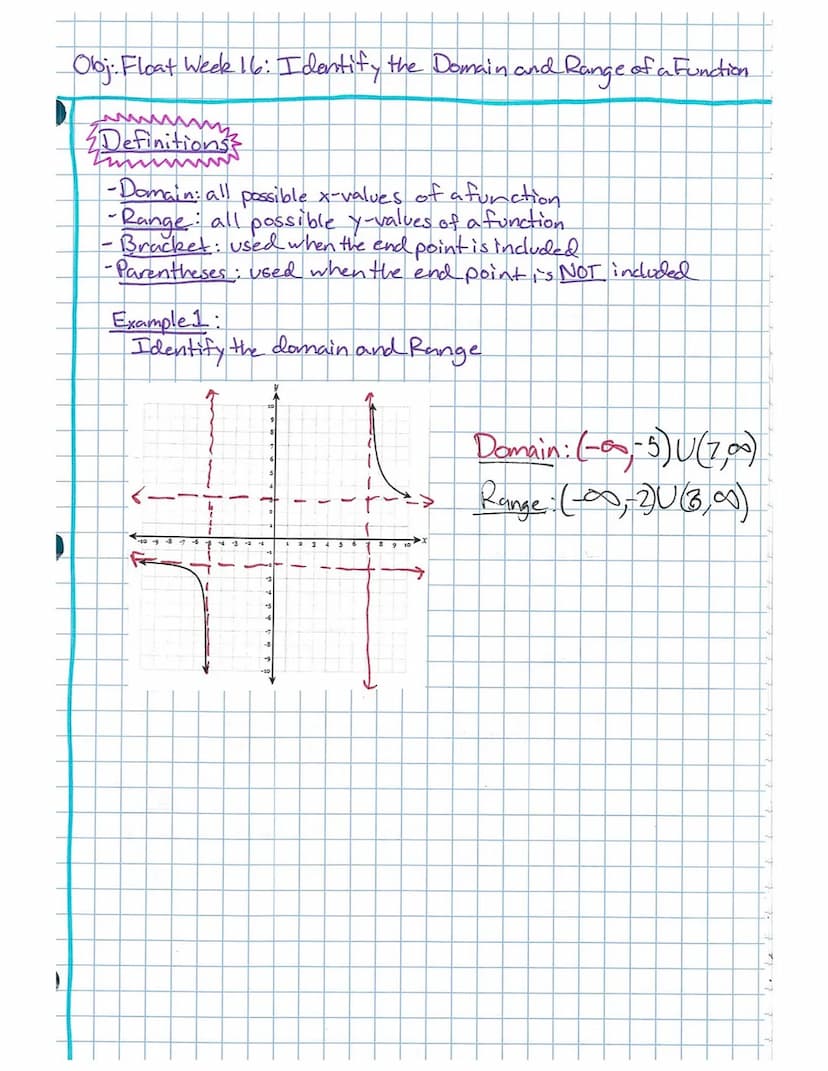 Obj: Float Week 16: Identify the Domain and Range of a Function
Definitions
-Domain: all possible x-values of a function
-Range: all possible y-values of a function
-Bracket: used when the end point is included
-Parentheses: used when the end point is NOT included
Example 1:
Identify the domain and Range
Domain: (-∞,-5)U(7,∞)
Range: (-∞,-2)U(3,∞)
y
x